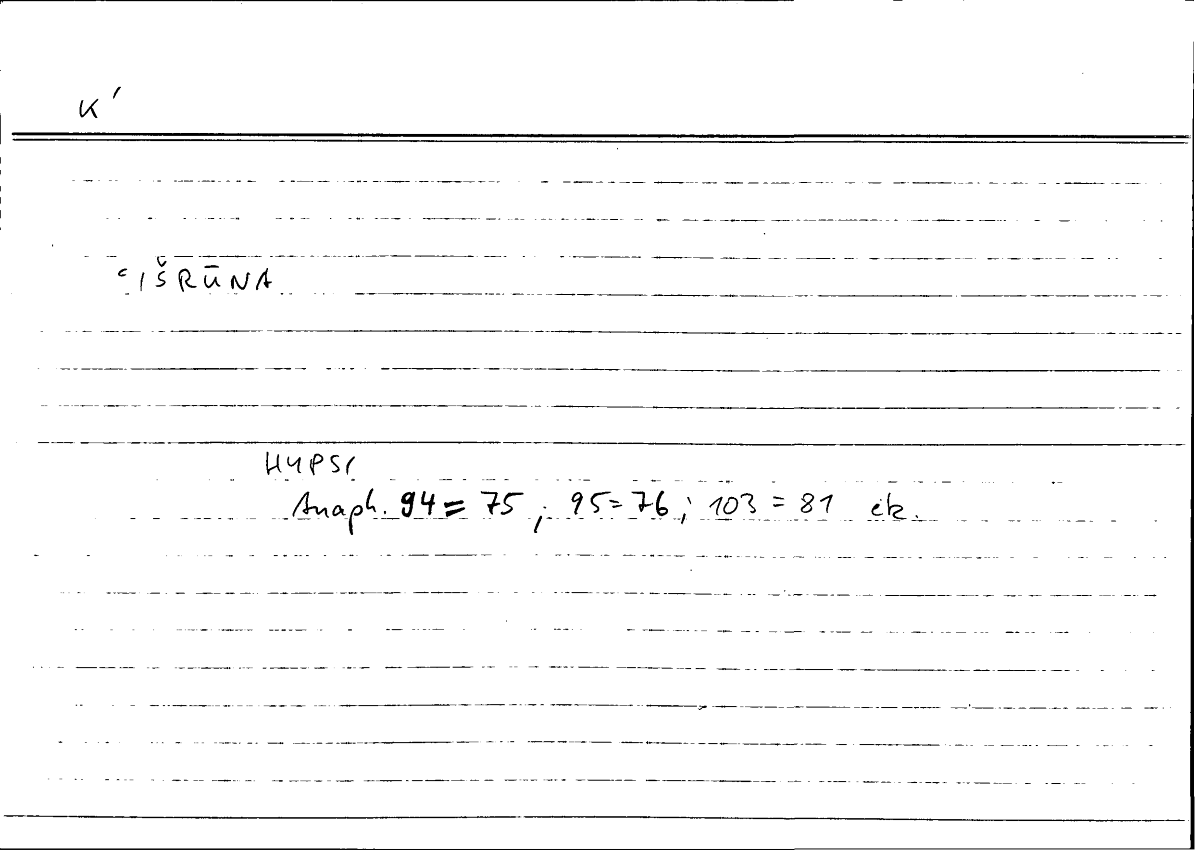 K'
ʿIŠRŪNA
HYPSI
Anaph. 94 = 75 ; 95 = 76 ; 103 = 81 etc.